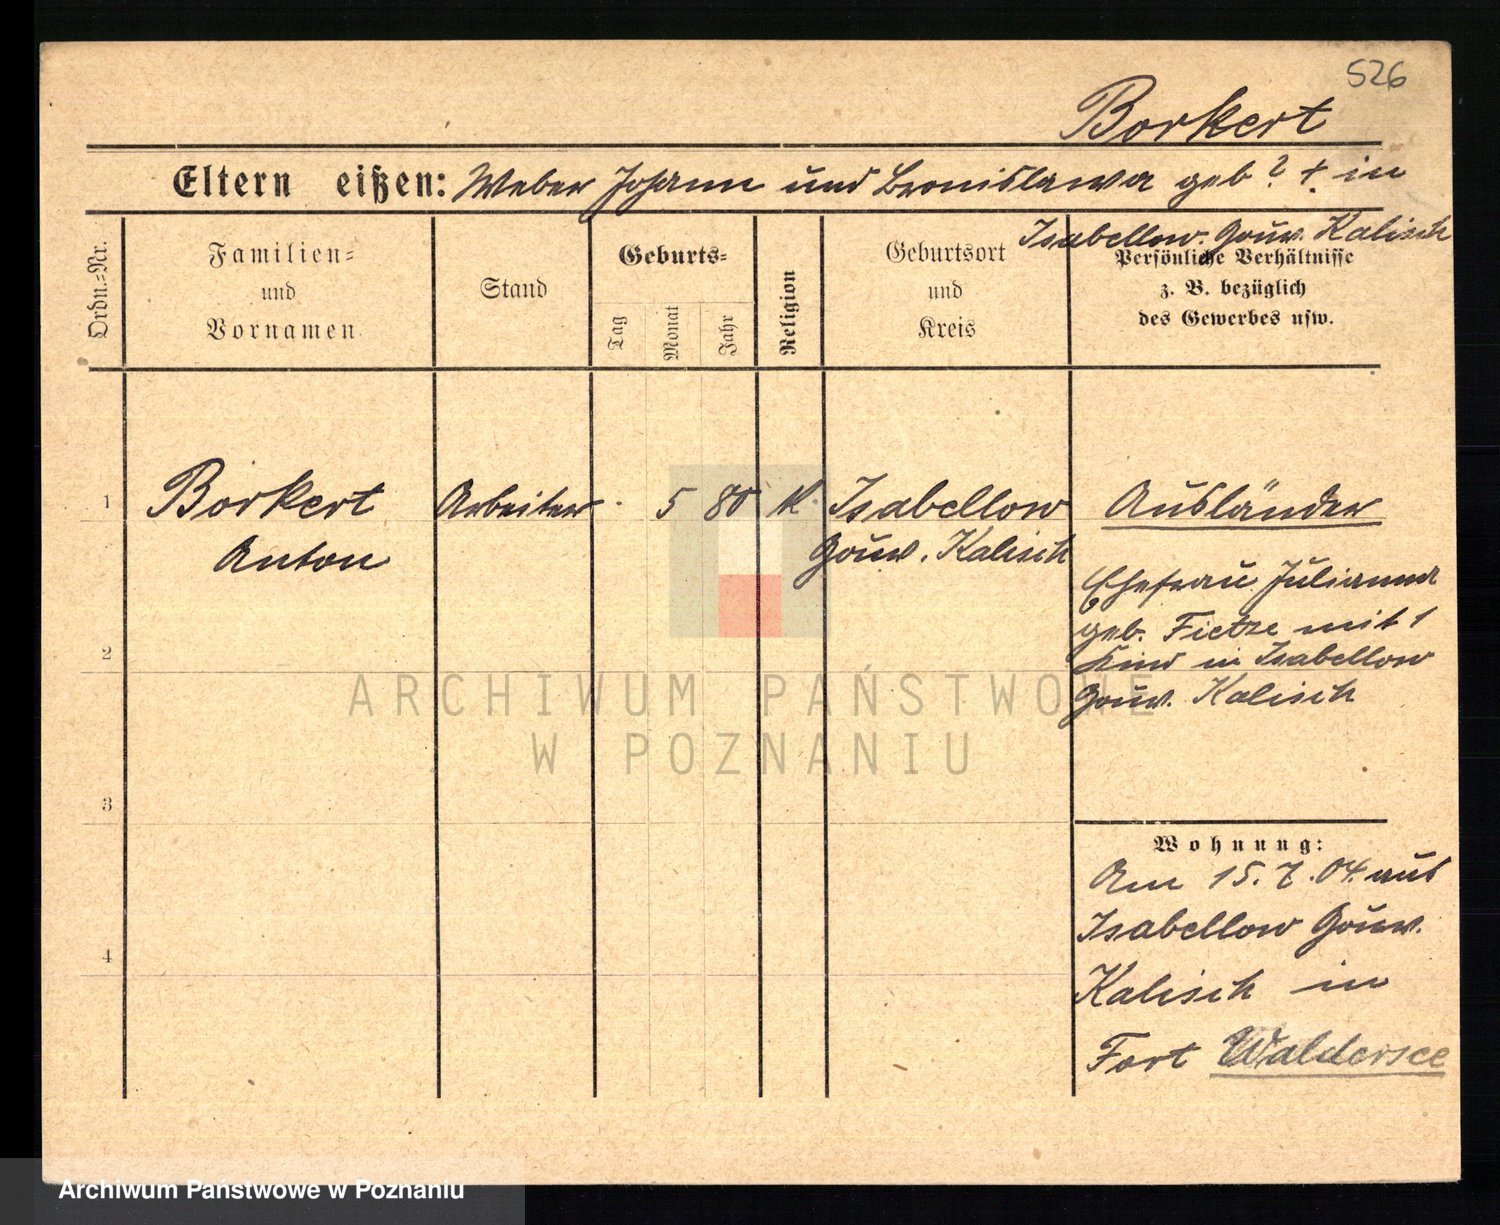 526
Borkert
Eltern eißen: Weber Johann und Bronislawa geb ? +. in
Isabellow. Gouv. Kalisch
Ordn.-Nr.
Familien-
und
Vornamen
Stand
Geburts-
Tag
Monat
Jahr
Religion
Geburtsort
und
Kreis
Persönliche Verhältnisse
z. B. bezüglich
des Gewerbes usw.
1
Borkert
Anton
Arbeiter
5
80
k.
Isabellow
Gouv. Kalisch
Ausländer
Ehefrau Julianna
geb. Fietze mit 1
Kind in Isabellow
Gouv. Kalisch
2
3
4
Wohnung:
Am 15. 7. 04. aus
Isabellow Gouv.
Kalisch in
Fort Waldersee
ARCHIWUM PAŃSTWOWE
W POZNANIU
Archiwum Państwowe w Poznaniu